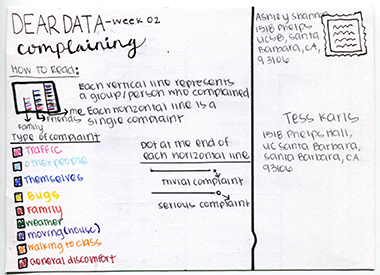 DEAR DATA - week 02
complaining
HOW TO Read:
Each vertical line represents
a group/person who complained
me Each horizontal line is a
Friends single complaint
Family
Type of complaint
Traffic
other people
Themselves
Bugs
Family
weather
moving (house)
walking to class
General discomfort
Dot at the end of
each horizontal line
trivial complaint
serious complaint
Ashley
1518 Phelps
UCSB, Santa
Barbara, CA,
93106
Tess Karls
1518 Phelps Hall,
UC Santa Barbara,
Santa Barbara, CA
93106